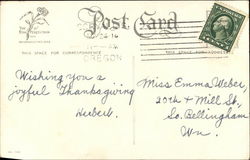 Post Card
11-AM
OREGON
THIS SPACE FOR CORRESPONDENCE
Wishing you a
joyful Thanksgiving
Herbert.
Miss Emma Weber,
20th & Mill St,
So. Bellingham
Wn.